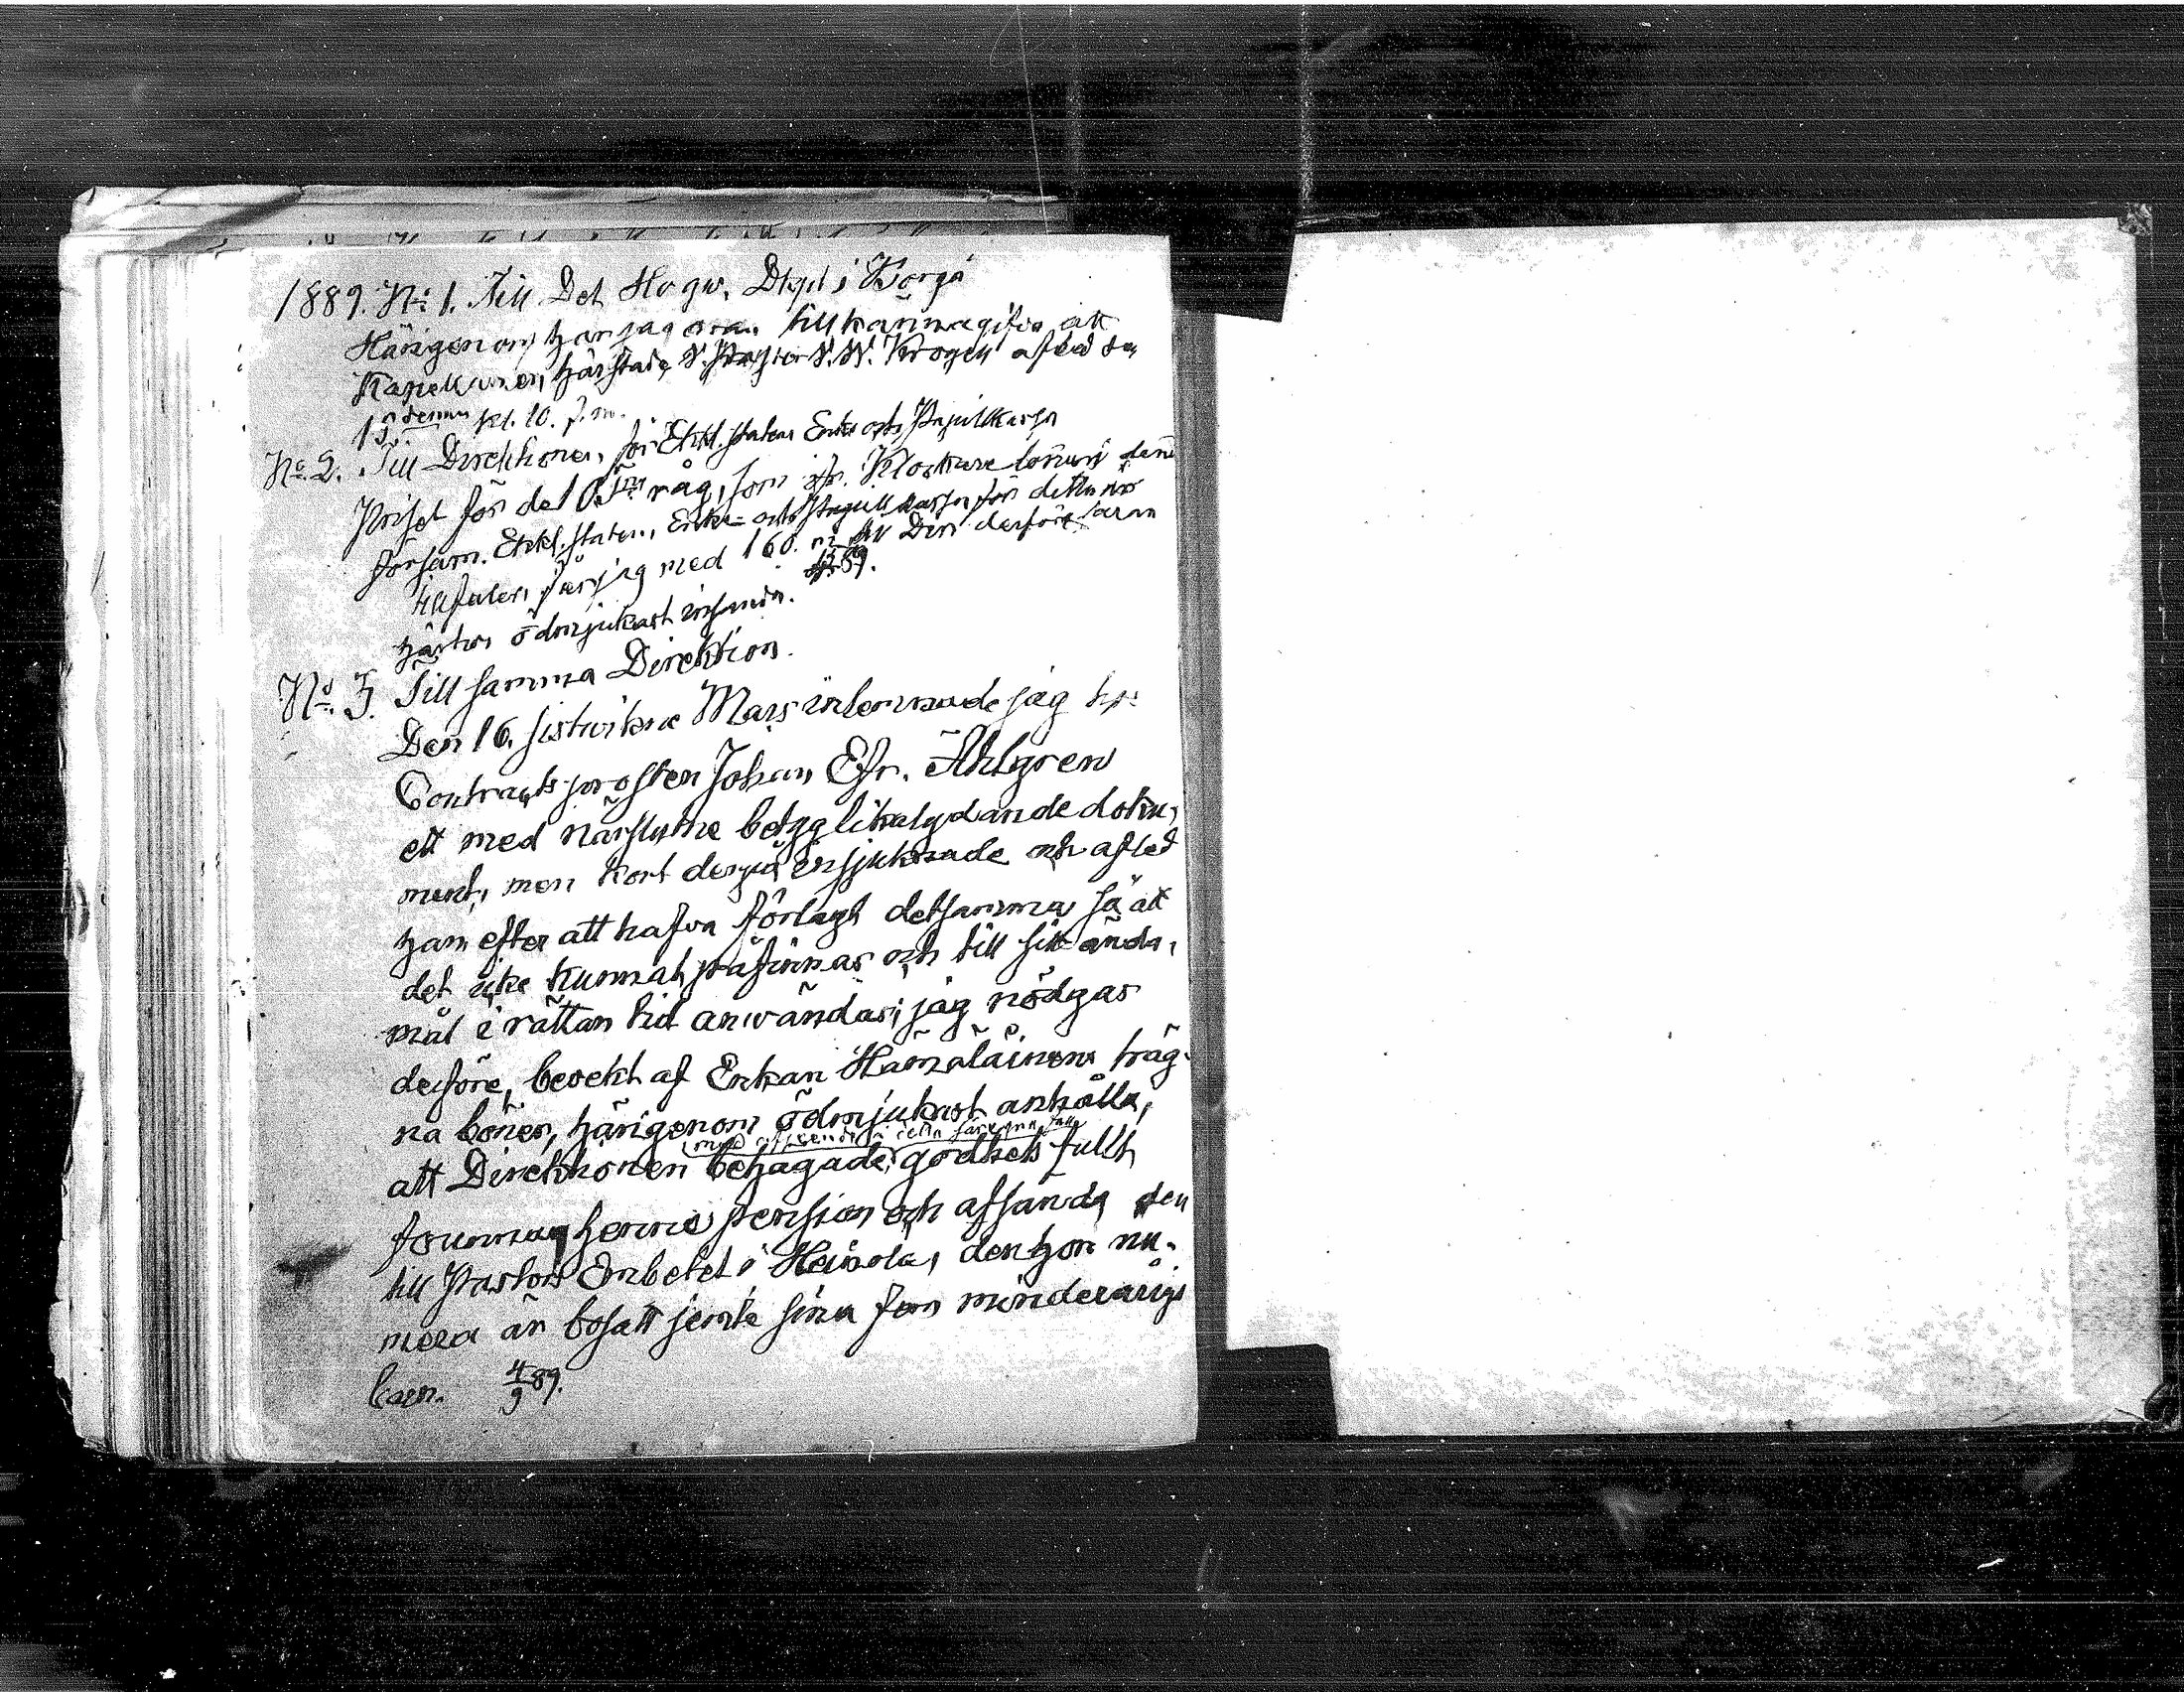 1889. No. 1. Till Det Högw. Dkptl i Borgå
Härigenom har jag äran tillkännagifva att
Kapellanen härstäde V. Pastor V. W. Krogell afled den
15 dennes kl. 10. f.m.
No. 2. Till Direktionen för Eckl. staten Enke och Pupillkassa
Priset för de 10 råg, som ifr. Klockare lönen i denna
försam. Eckl. staten, Enke- och Pupill kassa för detta år
tillfaller, får jag med 160. Direk derföre äran
härhos ödmjukast insända. 89.
No. 3. Till samma Direktion.
Den 16. sistvikne Mars inlemnade jag till
Contractsprosten Johan Efr. Ahlgren
ett med närslutne betyg likalydande doku-
ment, men kort derpå insjuknade och afled
han efter att hafva förlagt detsamma så att
det icke kunnat påfinnas och till sitt ända-
mål i rättan tid användas; jag nödgas
derföre, bevekt af Enkan Hämäläinens träg-
na böner, härigenom ödmjukast anhålla,
med afseende å detta
att Direktionen behagade godhetsfullt
henne pension och afsända den
till Pastors Embetet i Heinola, der hon nu-
mera är bosatt jemte sina fem minderåriga
barn. 4/9 89.